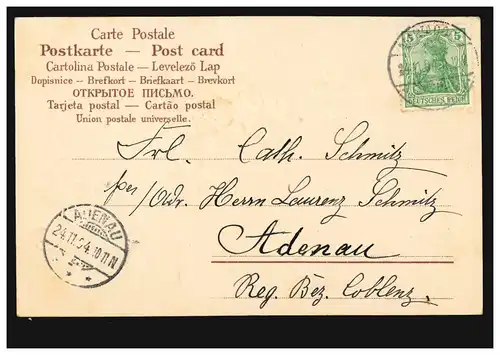 Carte Postale
Postkarte — Post card
Cartolina Postale — Levelező Lap
Dopisnice — Brefkort — Briefkaart — Brevkort
ОТКРЫТОЕ ПИСЬМО.
Tarjeta postal — Cartão postal
Union postale universelle.
5 5
DEUTSCHES REICH
Frl. Cath. Schmitz
per/Adr. Herrn Laurenz Schmitz
Adenau
Reg. Bez. Coblenz.
ADENAU
24.11.04.10-11.N